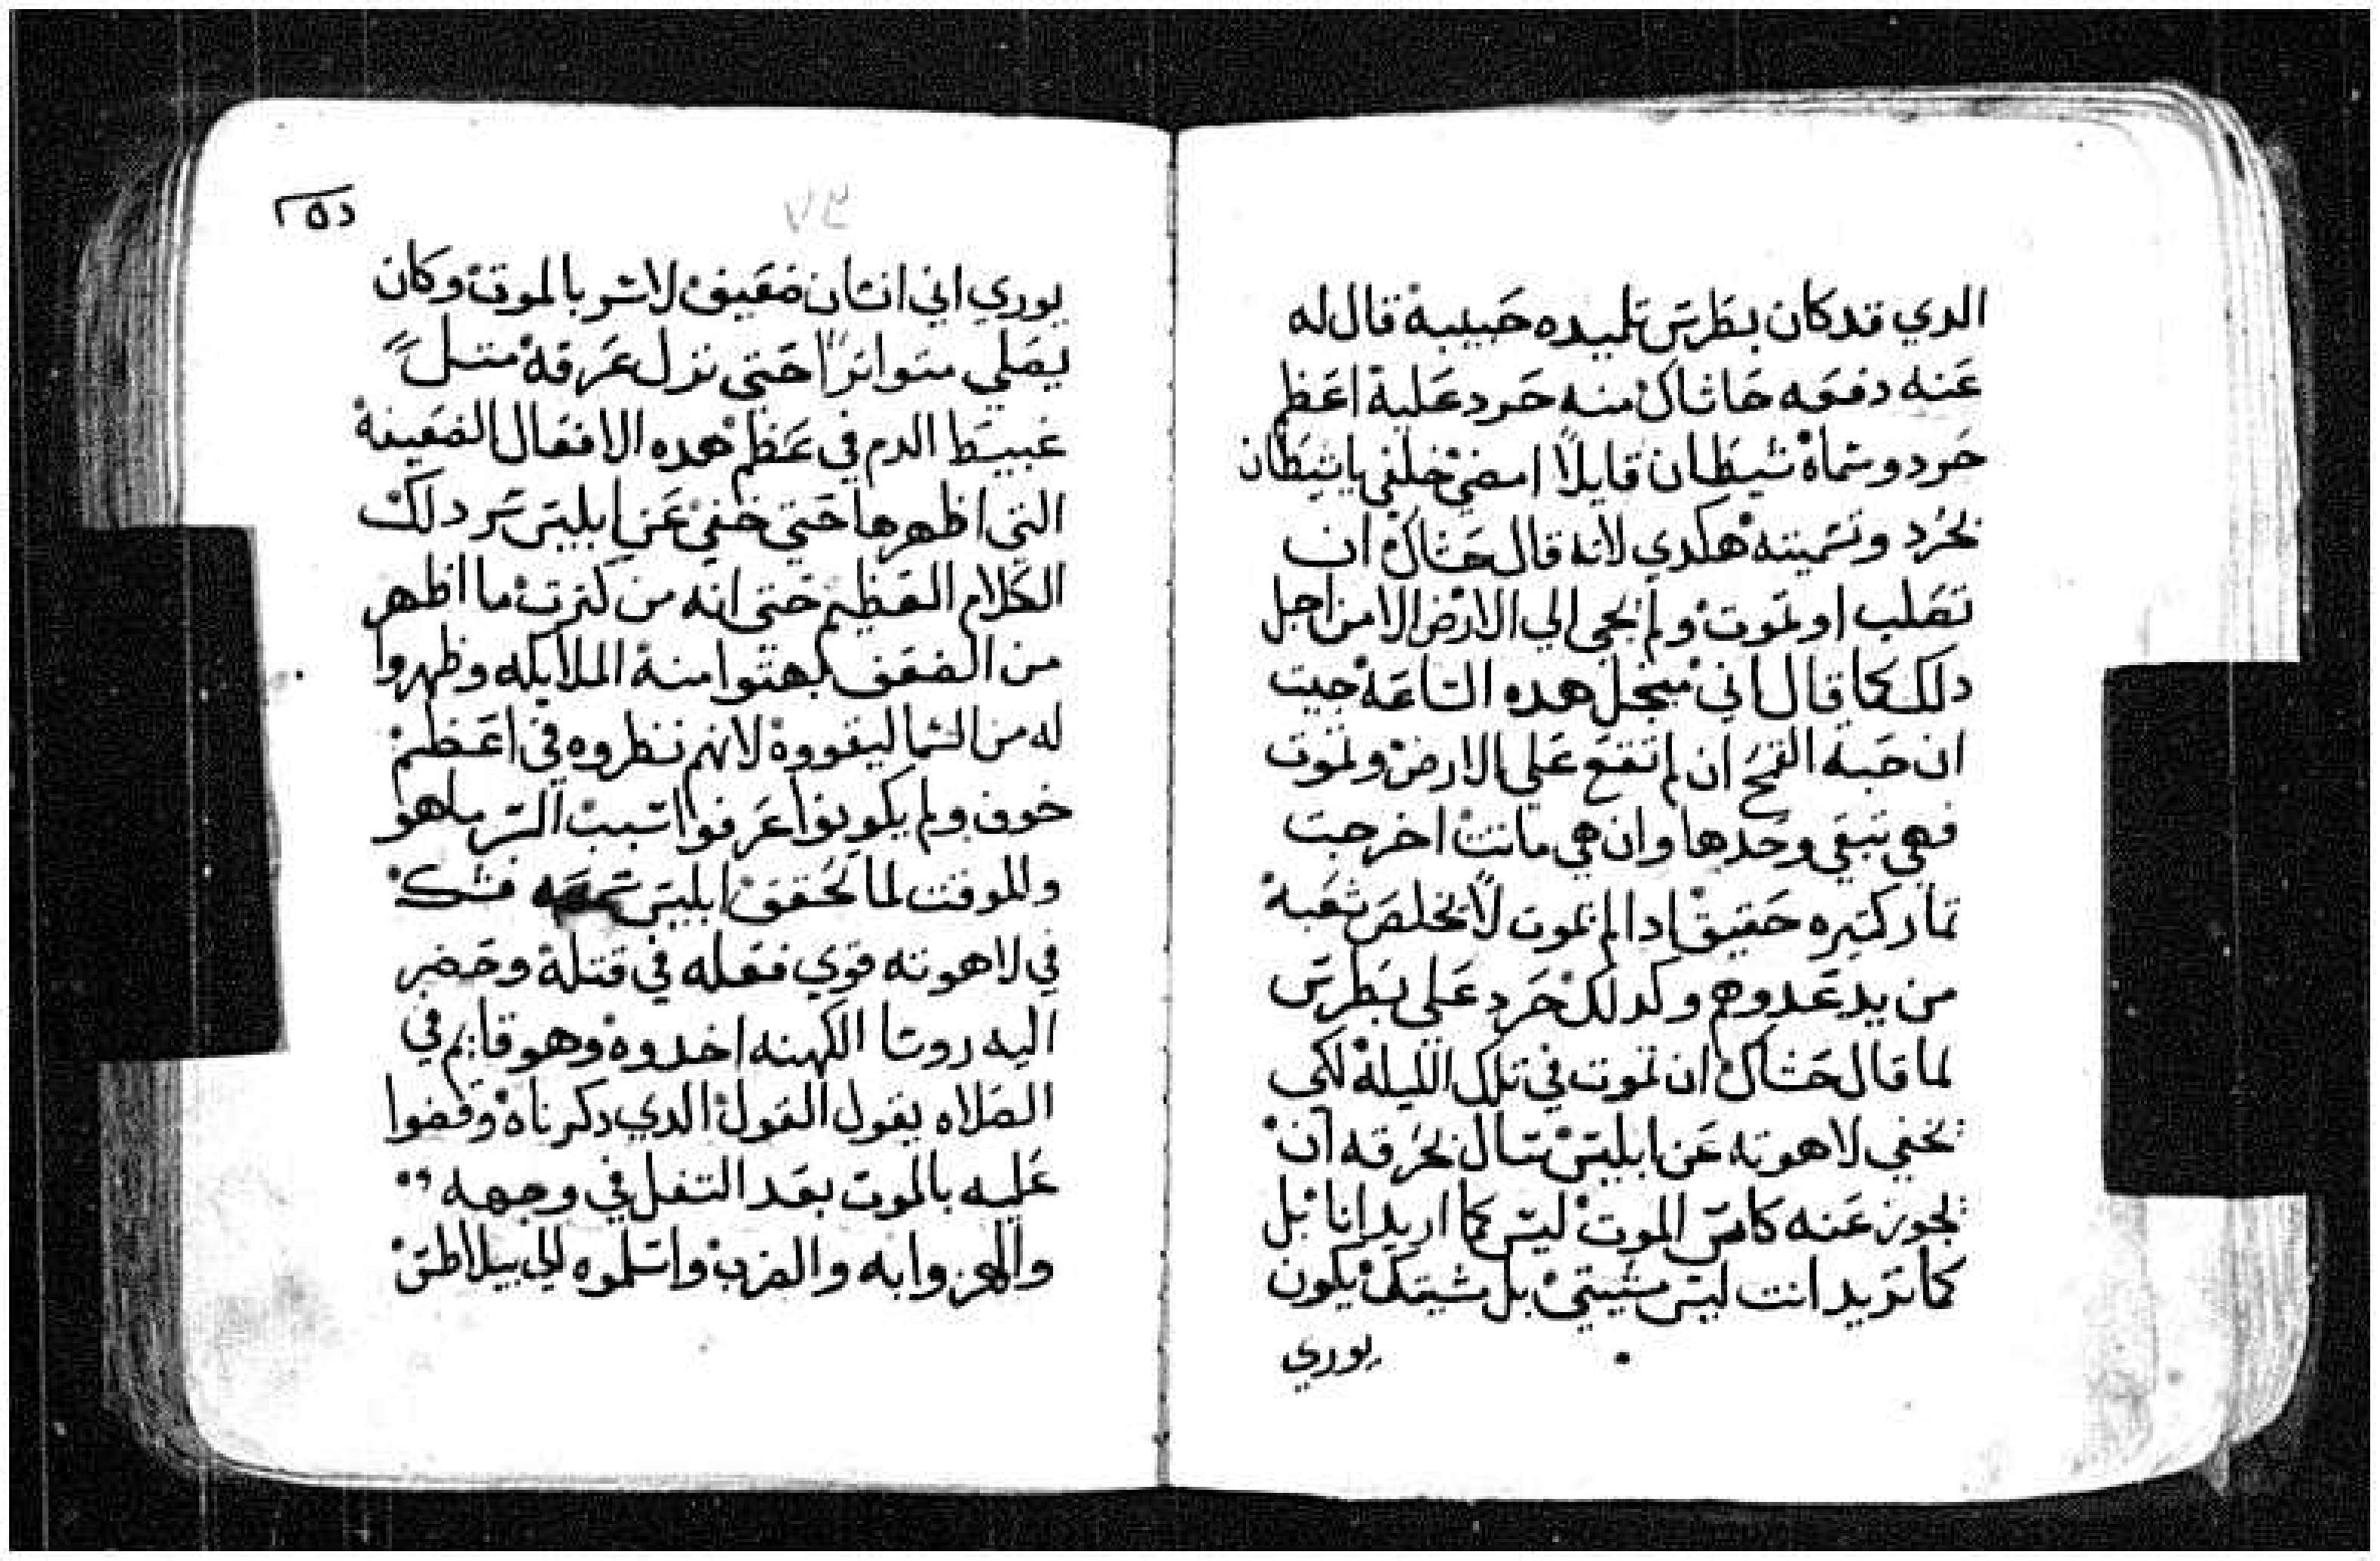 الدي قد كان بطرس تلميده حبيبة قال له
عنه دفعه حاشاك منه حرد علية اعظم
حرد وسماة شيطان قايلاً امضي خلفي يا شيطان
بحرد وتسميته هكدي لانه قال حشاك ان
تصلب او تموت ولم يجي الي الارض الا من اجل
دلك كما قال اني من اجل هده الساعة جيت
ان حبة القمح ان لم تقع علي الارض وتموت
فهي تبقي وحدها وان هي ماتت اخرجت
تمار كتيره حقيق ادا لم تموت لا يخلص شعبة
من يد عدوهم وكدلك حرد علي بطرس
لما قال حشاك ان تموت في تلك الليلة لكي
يخفي لاهوته عن ابليس سال بحرقه ان
يجوز عنه كاس الموت ليس كما اريد انا بل
كما تريد انت ليس مشيتي بل مشيتك يكون
يوري
٧٣
يوري اني انسان ضعيف لاسر بالموت وكان
يصلي متواتراً حتي نزل عرقة متل
عبيط الدم في عظم هده الافعال الضعيفة
التي اظهرها حتي خفي عن ابليس سر دلك
الكلام العظيم حتي انه من كترت ما اظهر
من الضعف بهتوا منة الملايكه وظهروا
له من السما ليقووة لانهم نظروه في اعظم
خوف ولم يكونوا عرفوا سبب السر ما هو
وللوقت لما تحقق ابليس ضعفه فشك
في لاهوته قوي فعله في قتلة وحضر
اليه روسا الكهنه اخدوة وهو قايم في
الصلاه يقول القول الدي دكرناة وقضوا
عليه بالموت بعد التفل في وجهه
والهزوا به والضرب واسلموه الي بيلاطس